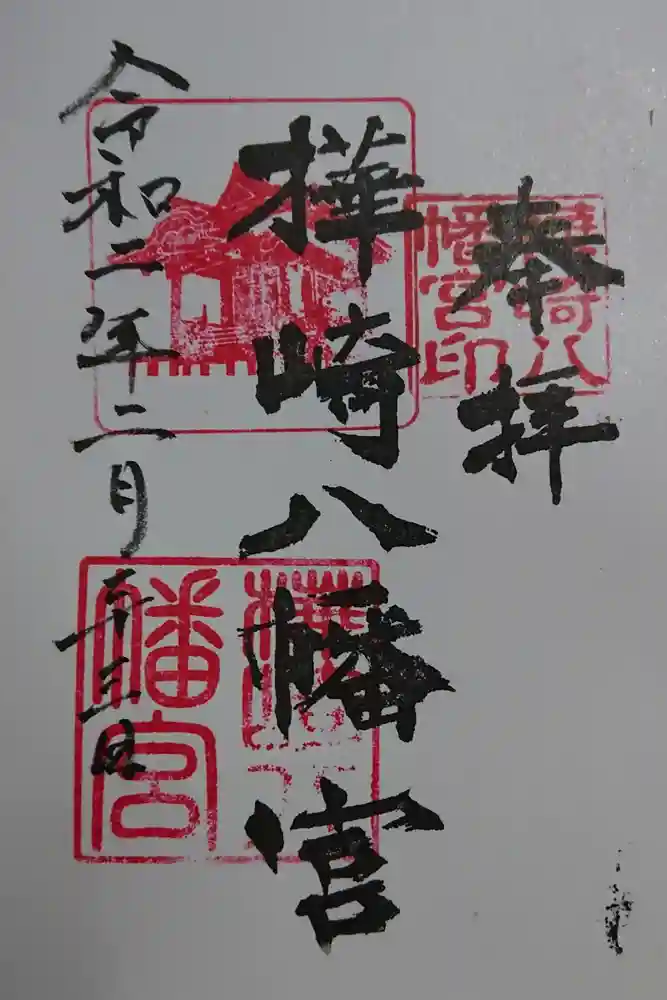 奉拝
樺崎八幡宮
令和二年二月二十三日
樺崎八幡宮印
幡宮